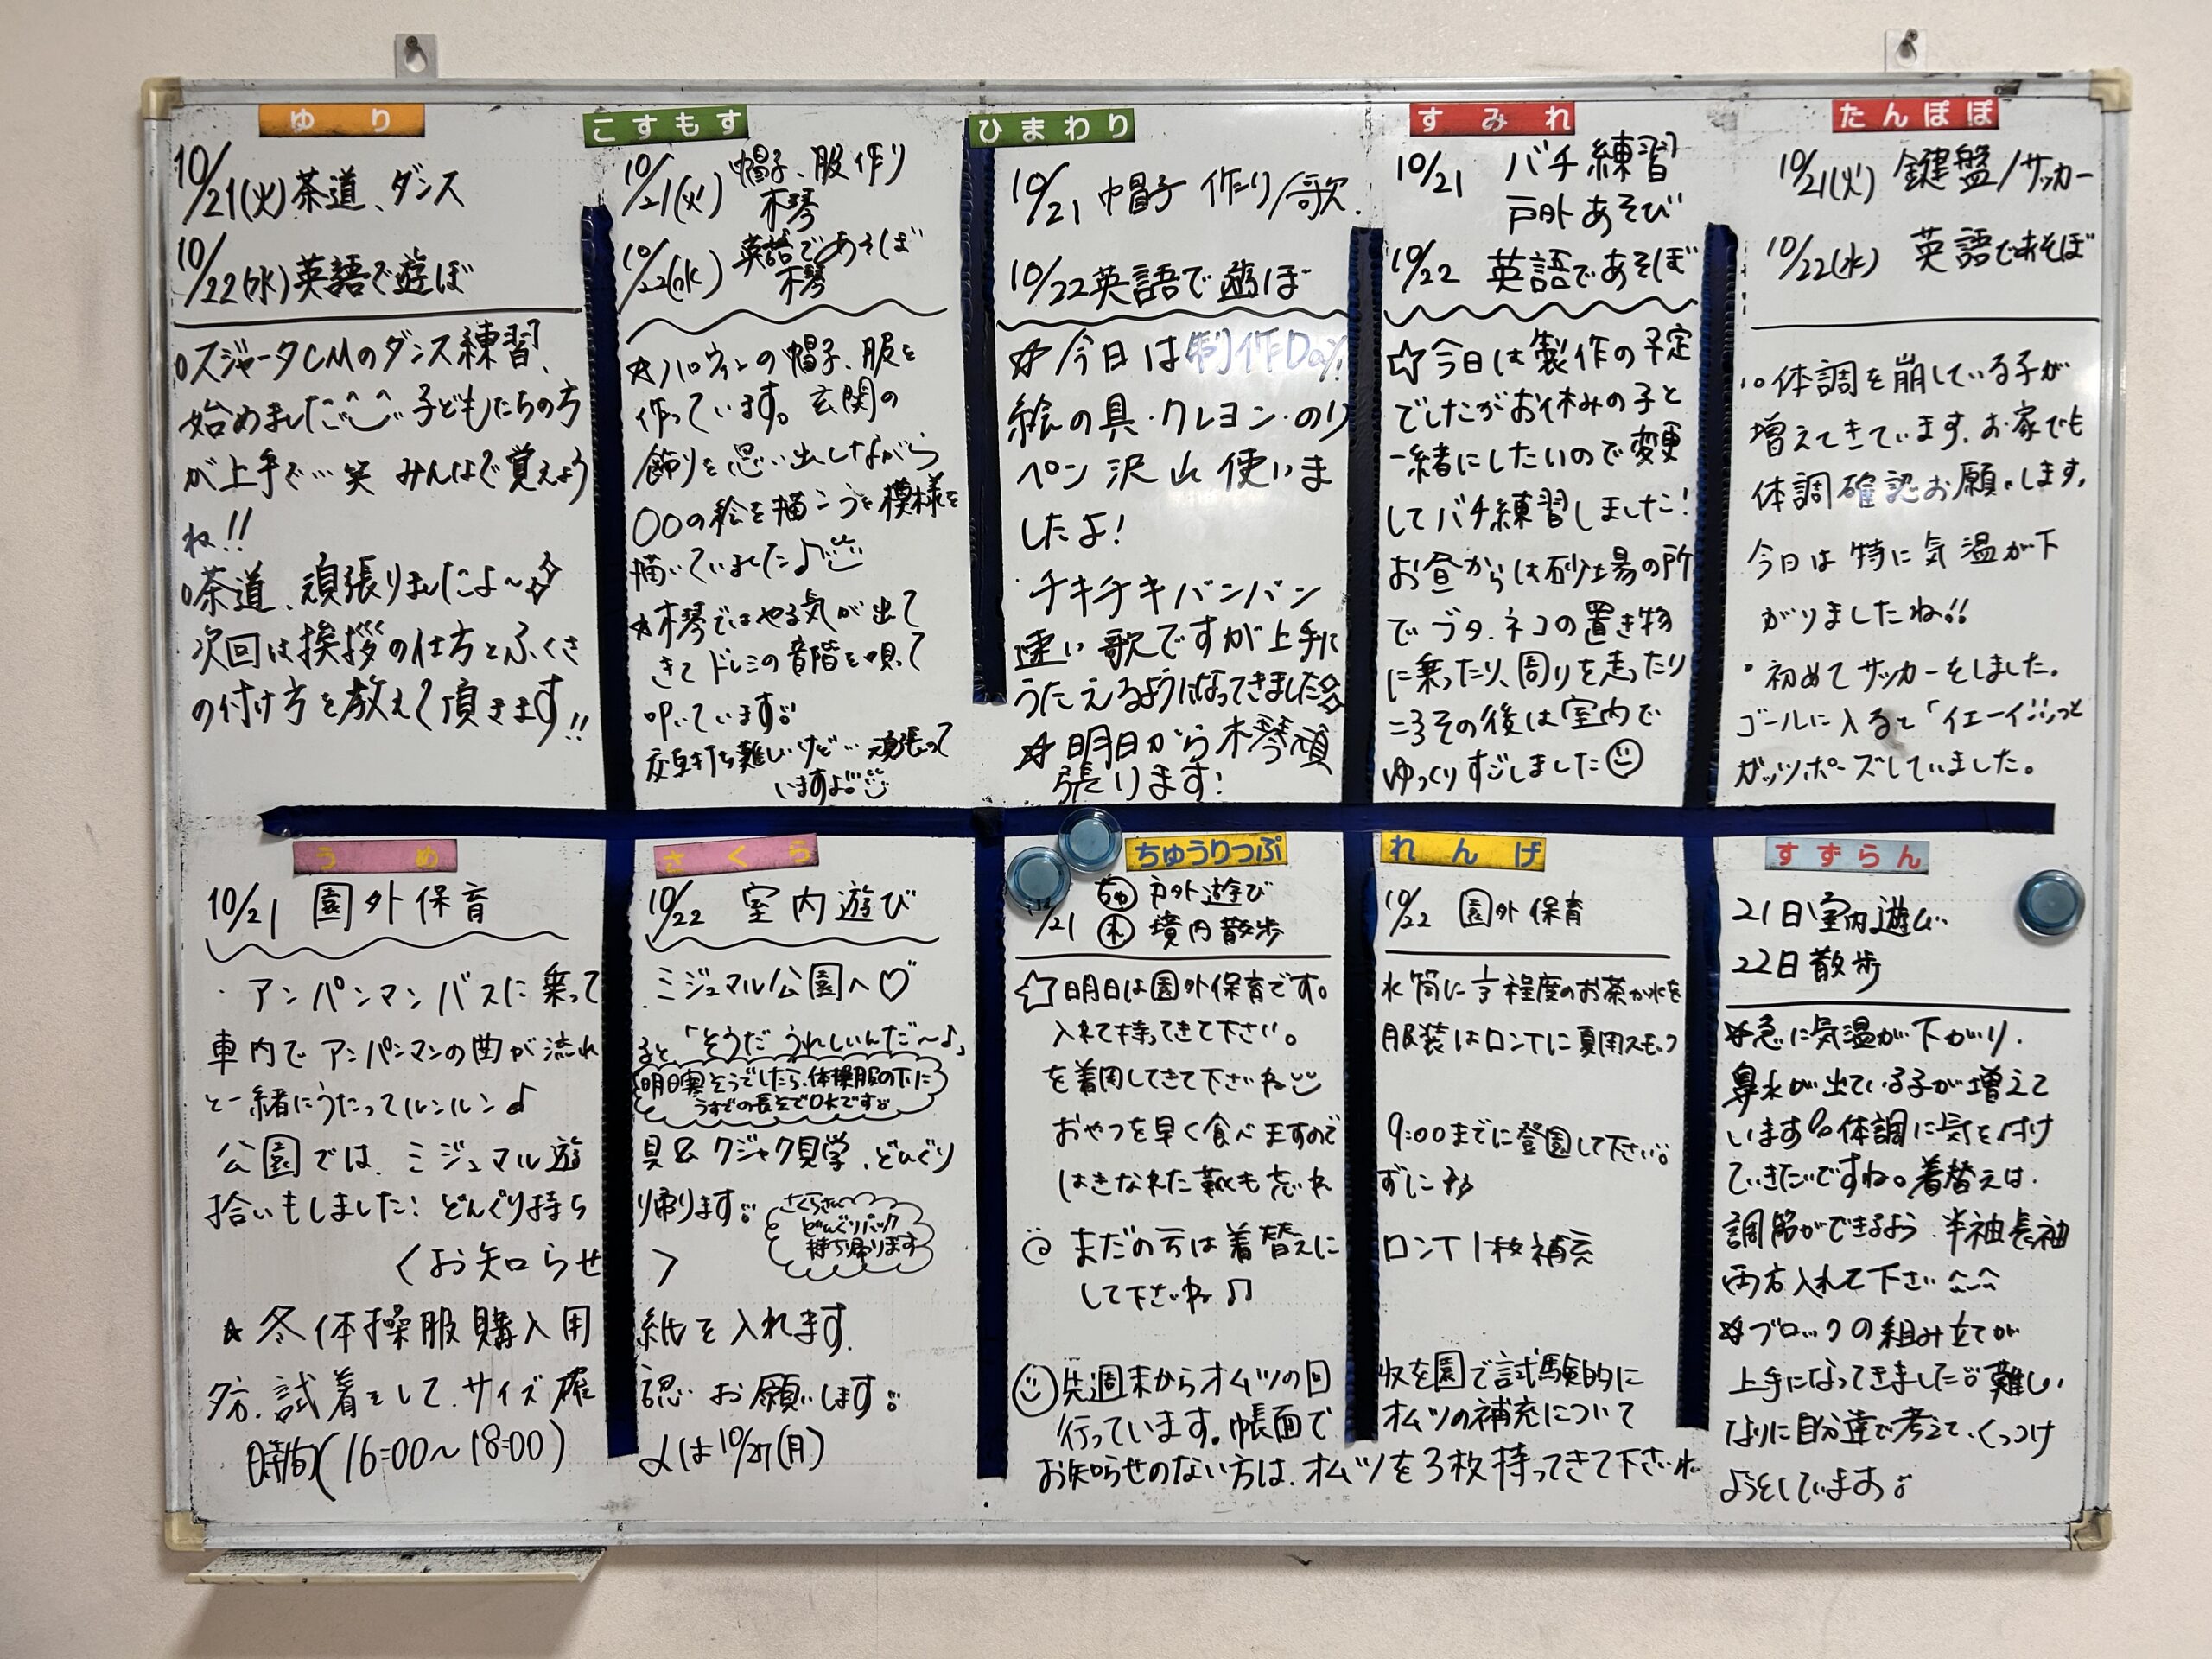 ゆり
10/21(火)茶道、ダンス
10/22(水)英語で遊ぼ
○スジャータCMのダンス練習、
始めました 子どもたちの方
が上手で…笑 みんなで覚えよう
ね!!
○茶道、頑張りましたよ～
次回は挨拶の仕方とふくさ
の付け方を教えて頂きます!!
こすもす
10/21(火) 帽子、服作り
木琴
10/22(水) 英語であそぼ
木琴
☆ハロウィンの帽子、服を
作っています。玄関の
飾りを思い出しながら
○○の絵を描こうと模様を
描いていました♪
☆木琴ではやる気が出て
きてドレミの音階を唄って
叩いています
交互打ち難しいけど…頑張って
いますよ
ひまわり
10/21 帽子作り/歌
10/22英語で遊ぼ
☆今日は制作Day!
絵の具・クレヨン・のり
ペン沢山使いま
したよ!
・チキチキバンバン
速い歌ですが上手に
うたえるようになってきました
☆明日から木琴頑
張ります!
すみれ
10/21 バチ練習
戸外あそび
10/22 英語であそぼ
☆今日は製作の予定
でしたがお休みの子と
一緒にしたいので変更
してバチ練習しました!
お昼からは砂場の所
でブタ、ネコの置き物
に乗ったり、周りを走ったり
ころその後は室内で
ゆっくりすごしました
たんぽぽ
10/21(火) 鍵盤/サッカー
10/22(水) 英語であそぼ
。体調を崩している子が
増えてきています。お家でも
体調確認お願いします。
今日は特に気温が下
がりましたね!!
・初めてサッカーをしました。
ゴールに入ると「イエーイ!!」っと
ガッツポーズしていました。
うめ
さくら
10/21 園外保育
10/22 室内遊び
・アンパンマンバスに乗って ミジュマル公園へ♡
車内でアンパンマンの曲が流れ ると「そうだ うれしいんだ～♪」
と一緒にうたってルンルン♪
明日寒そうでしたら、体操服の下に
うすでの長そでOKです
公園では、ミジュマル遊 具&クジャク見学、どんぐり
拾いもしました! どんぐり持ち り帰ります
さくらさん
どんぐりパック
持ち帰ります
〈お知らせ〉
☆冬体操服購入用 紙を入れます。
夕方、試着をして、サイズ確 認、お願いします
時間(16:00～18:00) 〆は10/27(月)
ちゅうりっぷ
れんげ
10/21 ちゅ 戸外遊び
れ 境内散歩
10/22 園外保育
☆明日は園外保育です。 水筒に1/3程度のお茶か水を
入れて持ってきて下さい。 服装はロンTに夏用スモック
を着用してきて下さいね
おやつを早く食べますので 9:00までに登園して下さい
はきなれた靴も忘れ ずにね
まだの方は着替えに ロンT1枚補充
して下さいね♫
先週末からオムツの回 収を園で試験的に
行っています。帳面で オムツの補充について
お知らせのない方は、オムツを3枚持ってきて下さいね
すずらん
21日室内遊び
22日散歩
☆急に気温が下がり、
鼻水が出ている子が増えて
います 体調に気を付け
ていきたいですね。着替えは、
調節ができるよう、半袖長袖
両方入れて下さい
☆ブロックの組み立てが
上手になってきました 難しい
なりに自分達で考えて、くっつけ
ようとしています